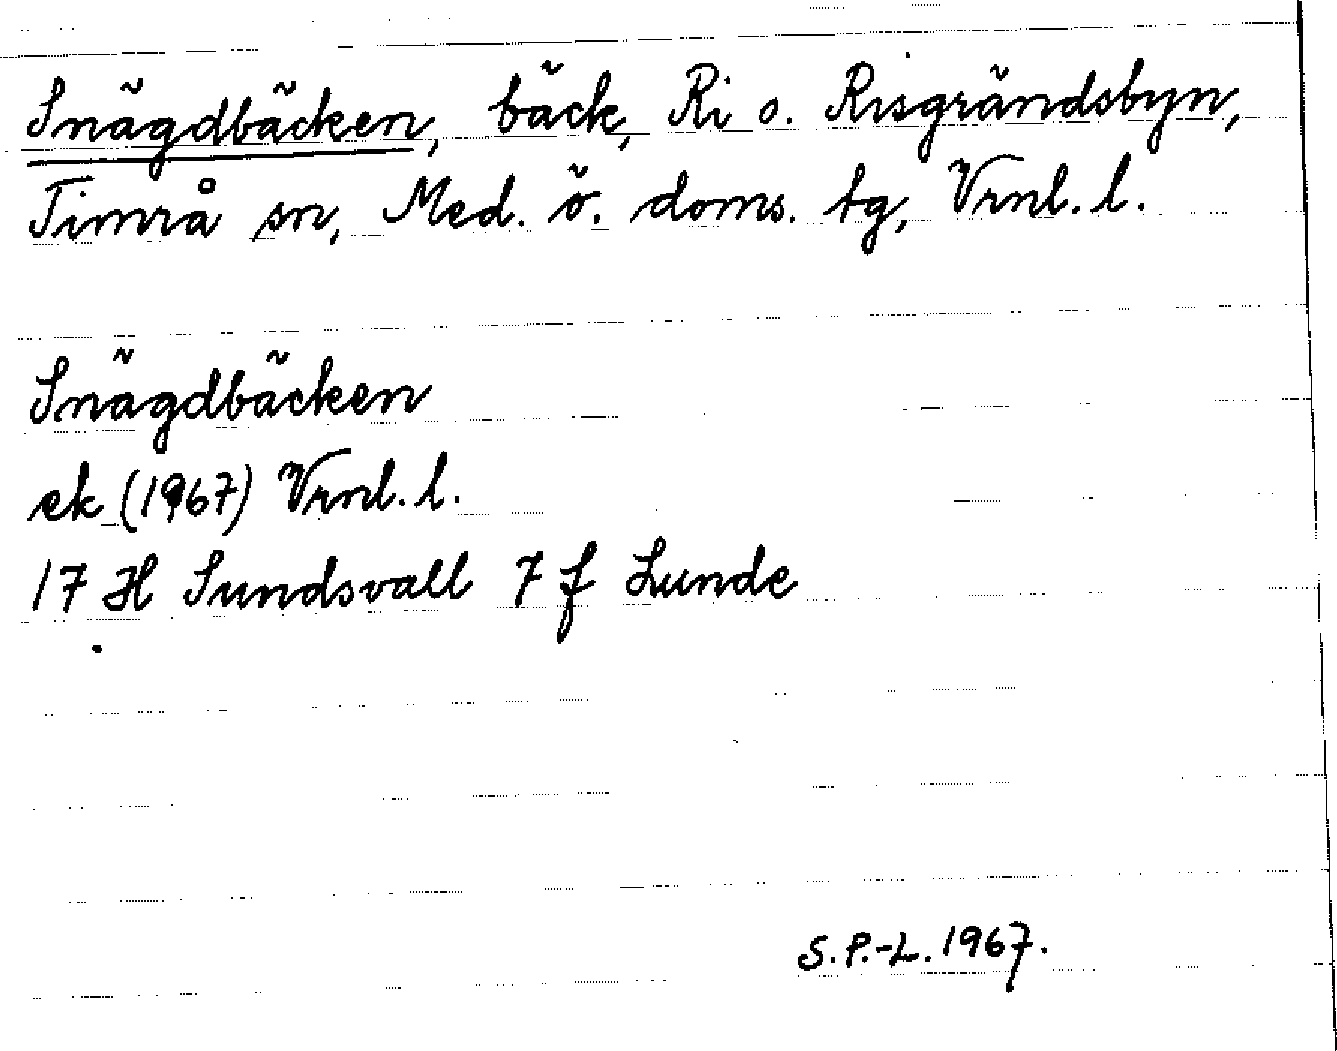 Snägdbäcken, bäck, Ri o. Risgrändsbyn,
Timrå sn, Med. ö. doms. tg, Vrnl. l.
Snägdbäcken
ek (1967) Vrnl. l.
17 H Sundsvall 7 f Lunde
S. P.-L. 1967.